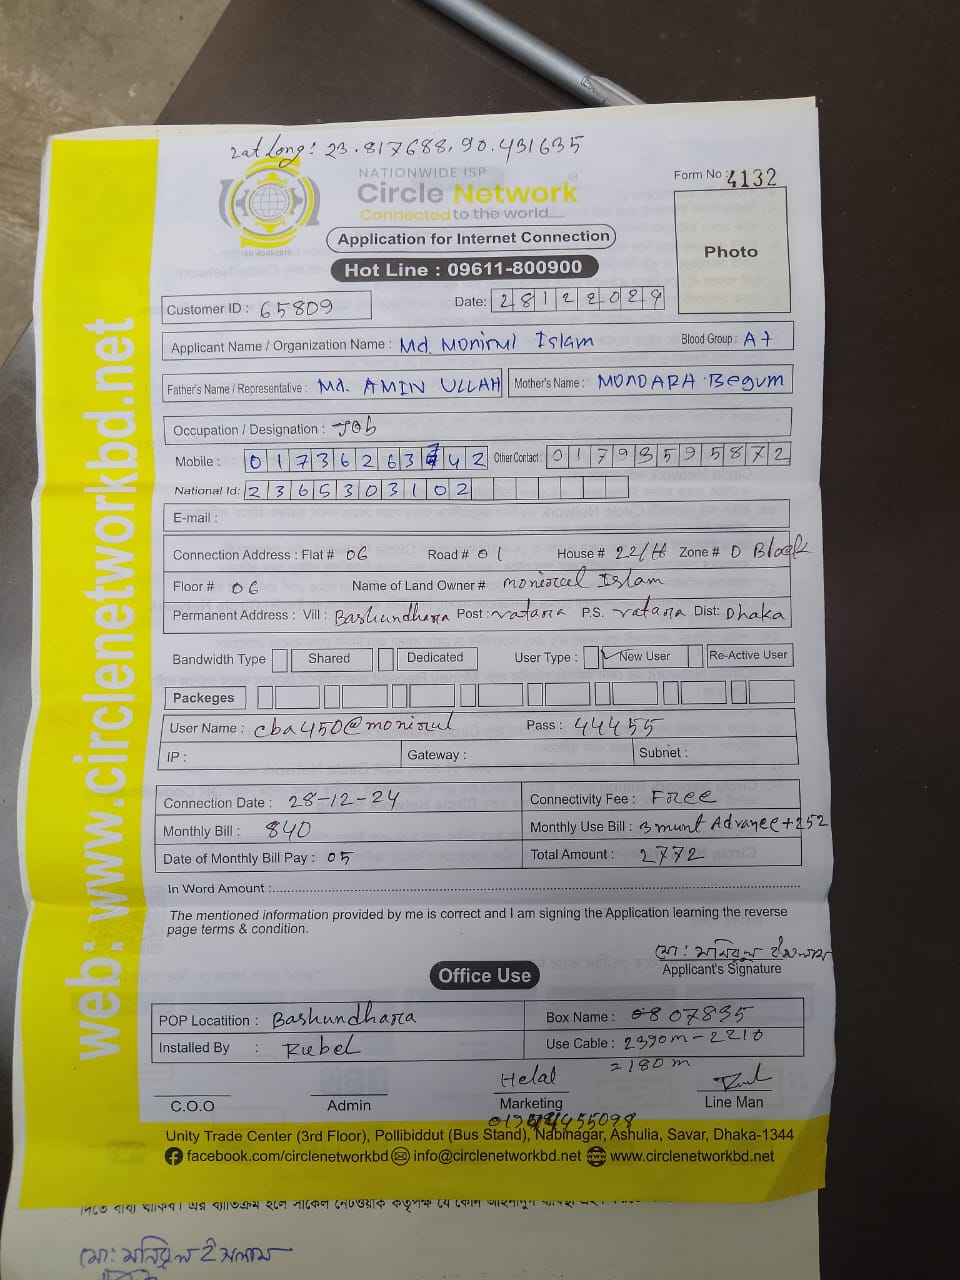 Lat Long: 23.817688, 90.431635
NATIONWIDE ISP
Circle Network
Connected to the world.....
ISO 9001:2015
Form No : 4132
Application for Internet Connection
Photo
Hot Line : 09611-800900
Customer ID : 65809 Date: 28122024
Applicant Name / Organization Name : Md. Monirul Islam Blood Group : A+
Father's Name / Representative : Md. AMIN ULLAH Mother's Name : MONOARA Begum
Occupation / Designation : Job
Mobile : 01736263742 Other Contact : 01793595872
National Id: 2365303102
E-mail :
Connection Address : Flat # 06 Road # 01 House # 22/H Zone # D Block
Floor # 06 Name of Land Owner # monirul Islam
Permanent Address : Vill : Bashundhara Post : vatara P.S. vatara Dist: Dhaka
Bandwidth Type Shared Dedicated User Type : New User Re-Active User
Packeges
User Name : cba450@monirul Pass : 44455
IP : Gateway : Subnet :
Connection Date : 28-12-24 Connectivity Fee : Free
Monthly Bill : 840 Monthly Use Bill : 3 munt Advance+252
Date of Monthly Bill Pay : 05 Total Amount : 2772
In Word Amount :
The mentioned information provided by me is correct and I am signing the Application learning the reverse
page terms & condition.
মো: মনিরুল ইসলাম
Applicant's Signature
Office Use
POP Locatition : Bashundhara Box Name : 0807835
Installed By : Rubel Use Cable : 2390m-2210
2180 m
Helal
C.O.O Admin Marketing Line Man
Unity Trade Center (3rd Floor), Pollibiddut (Bus Stand), Nabinagar, Ashulia, Savar, Dhaka-1344
facebook.com/circlenetworkbd info@circlenetworkbd.net www.circlenetworkbd.net
web: www.circlenetworkbd.net
মো: মনিরুল ইসলাম